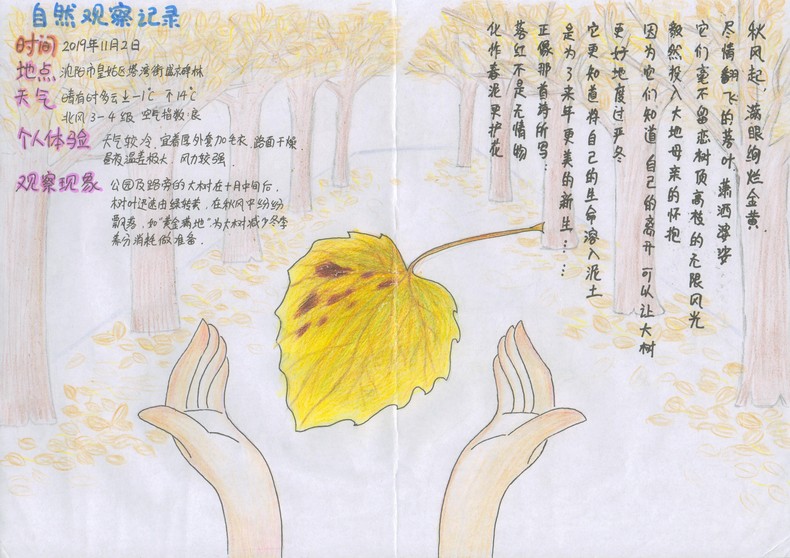 自然观察记录
时间 2019年11月2日
地点 沈阳市皇姑区塔湾街盛京碑林
天气 晴有时多云 上-1℃ 下14℃
北风3-4级 空气指数:良
个人体验 天气较冷,宜着厚外套加毛衣,路面干燥,
昼夜温差极大,风力较强.
观察现象 公园及路旁的大树在十月中旬后,
树叶迅速由绿转黄,在秋风中纷纷
飘落,如"黄金满地"为大树减少冬季
养分消耗做准备.
秋风起,满眼绚烂金黄.
尽情翻飞的落叶 潇洒婆娑
它们毫不留恋树顶高枝的无限风光
毅然投入大地母亲的怀抱
因为它们知道 自己的离开 可以让大树
更好地度过严冬
它更知道将自己的生命溶入泥土
是为了来年更美的新生……
正像那首诗所写:
落红不是无情物
化作春泥更护花